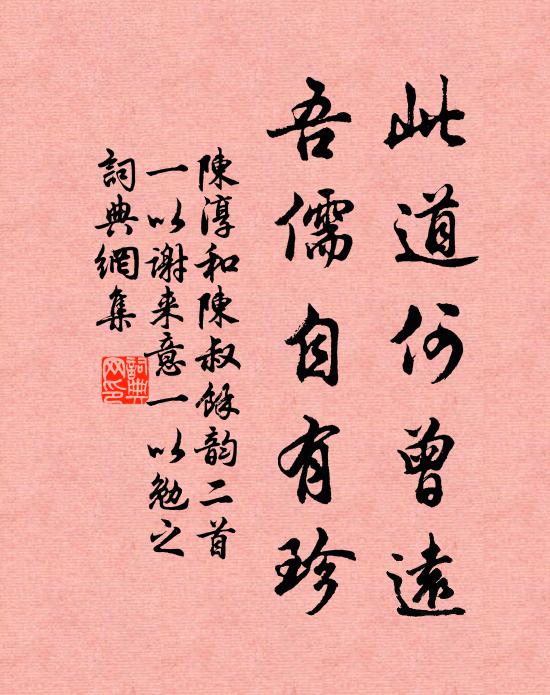 此道何曾遠
吾儒自有珍
陳淳和陳叔餘韵二首
一以谢来意一以勉之
詞典網集
詞典網印